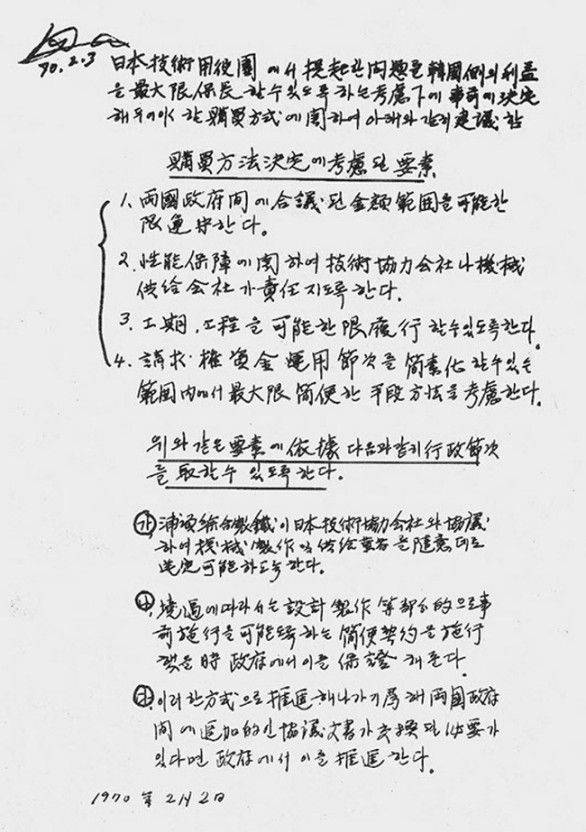 70.2.3
日本技術用役團에서 提起한 問題를 韓國側의 利益
을 最大限 保長할 수 있도록 하는 考慮下에 事前에 決定
해 두어야 할 購買方式에 關하여 아래와 같이 建議함
購買方法決定에 考慮될 要素
1. 両國政府間에 合議된 金額範囲을 可能한
限 遵守한다.
2. 性能保障에 関하여 技術協力会社나 機械
供給会社가 責任지도록 한다.
3. 工期, 工程을 可能한限 履行할 수 있도록 한다.
4. 請求権資金 運用節次를 簡素化할 수 있는
範囲内에서 最大限 簡便한 手段方法을 考慮한다.
위와 같은 要素에 依據 다음과 같이 行政節次
를 取할 수 있도록 한다.
㉮ 浦項綜合製鐵이 日本技術協力会社와 協議
하여 機械製作 및 供給業者를 隨意대로
選定可能하도록 한다.
㉯ 境遇에 따라서는 設計 製作 等 部分的으로 事
前施行을 可能토록 하는 簡便契約을 施行
할 時 政府에서 이를 保證해 준다.
㉰ 이러한 方式으로 推進해 나가기 爲해 両國政府
間에 追加的인 協議文書가 交換될 必要가
있다면 政府에서 이를 推進한다.
1970年 2月 2日